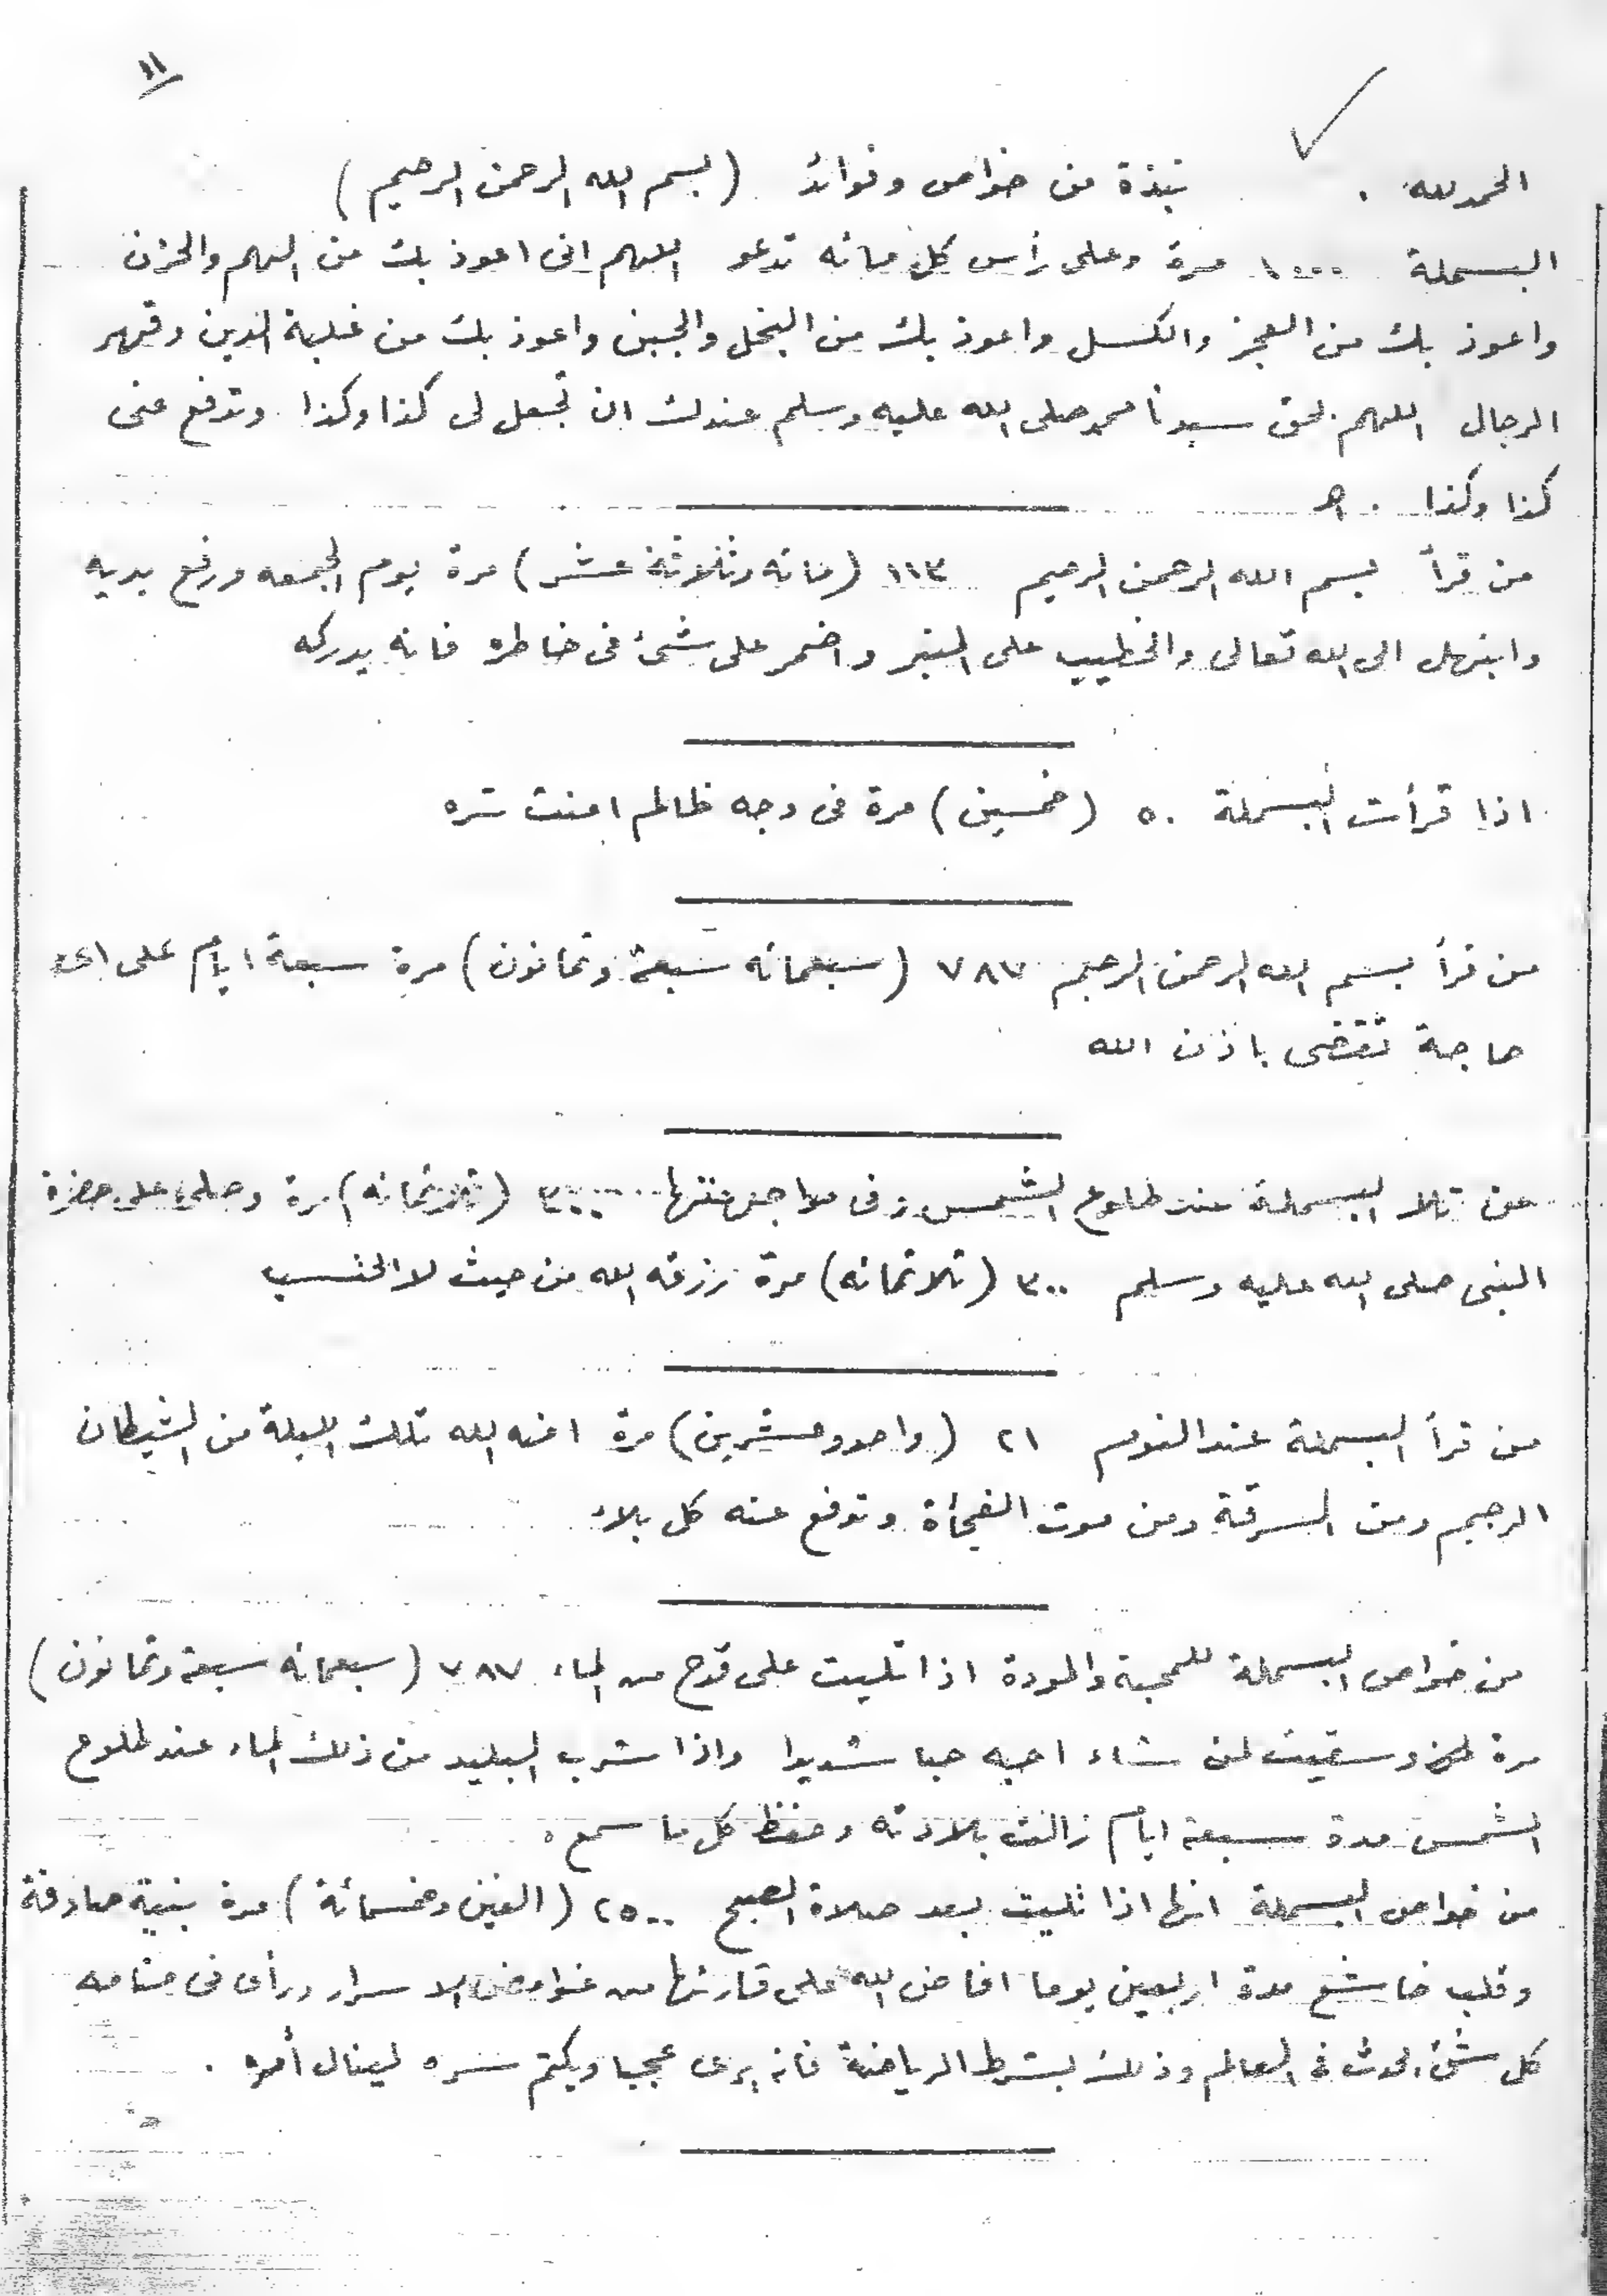 ١١
الحمد لله . نبذة من خواص وفوائد (بسم الله الرحمن الرحيم)
البسملة ١٠٠٠ مرة وعلى رأس كل مائه تدعو اللهم انى اعوذ بك من الهم والحزن
واعوذ بك من العجز والكسل واعوذ بك من البخل والجبن واعوذ بك من غلبة الدين وقهر
الرجال اللهم بحق سيدنا محمد صلى الله عليه وسلم عندك ان تجعل لى كذا وكذا وتدفع عنى
كذا وكذا . اهـ
من قرأ بسم الله الرحمن الرحيم ١١٣ (مائه وثلاثة عشر) مرة يوم الجمعه ورفع يديه
وابتهل الى الله تعالى والخطيب على المنبر واضمر على شئ فى خاطره فانه يدركه
اذا قرأت البسملة ٥٠ (خمسين) مرة فى وجه ظالم امنت شره
من قرأ بسم الله الرحمن الرحيم ٧٨٧ (سبعمائه سبعة وثمانون) مرة سبعة ايام على اى
حاجة تقضى باذن الله
من تلا البسملة عند طلوع الشمس فى مواجهتها ٣٠٠ (ثلاثمائه) مرة وصلى على حضرة
النبى صلى الله عليه وسلم ٣٠٠ (ثلاثمائه) مرة رزقه الله من حيث لا يحتسب
من قرأ البسملة عند النوم ٢١ (واحد وعشرين) مرة امنه الله تلك الليلة من الشيطان
الرجيم ومن السرقة ومن موت الفجأة وتدفع عنه كل بلاء
من خواص البسملة للمحبة والمودة اذا تليت على قدح من الماء ٧٨٧ (سبعمائه سبعة وثمانون)
مرة وسقيت لمن شاء احبه حبا شديدا واذا شرب البليد من ذلك الماء عند طلوع
الشمس مدة سبعة ايام زالت بلادته وحفظ كل ما سمعه
من خواص البسملة انها اذا تليت بعد صلاة الصبح ٢٥٠٠ (الفين وخمسمائة) مرة بنية صادقة
وقلب خاشع مدة اربعين يوما افاض الله على قارئها من غوامض الاسرار ورأى فى منامه
كل شئ يحدث فى العالم وذلك بشرط الرياضة فانه يرى عجبا ويكتم سره لينال أمره .